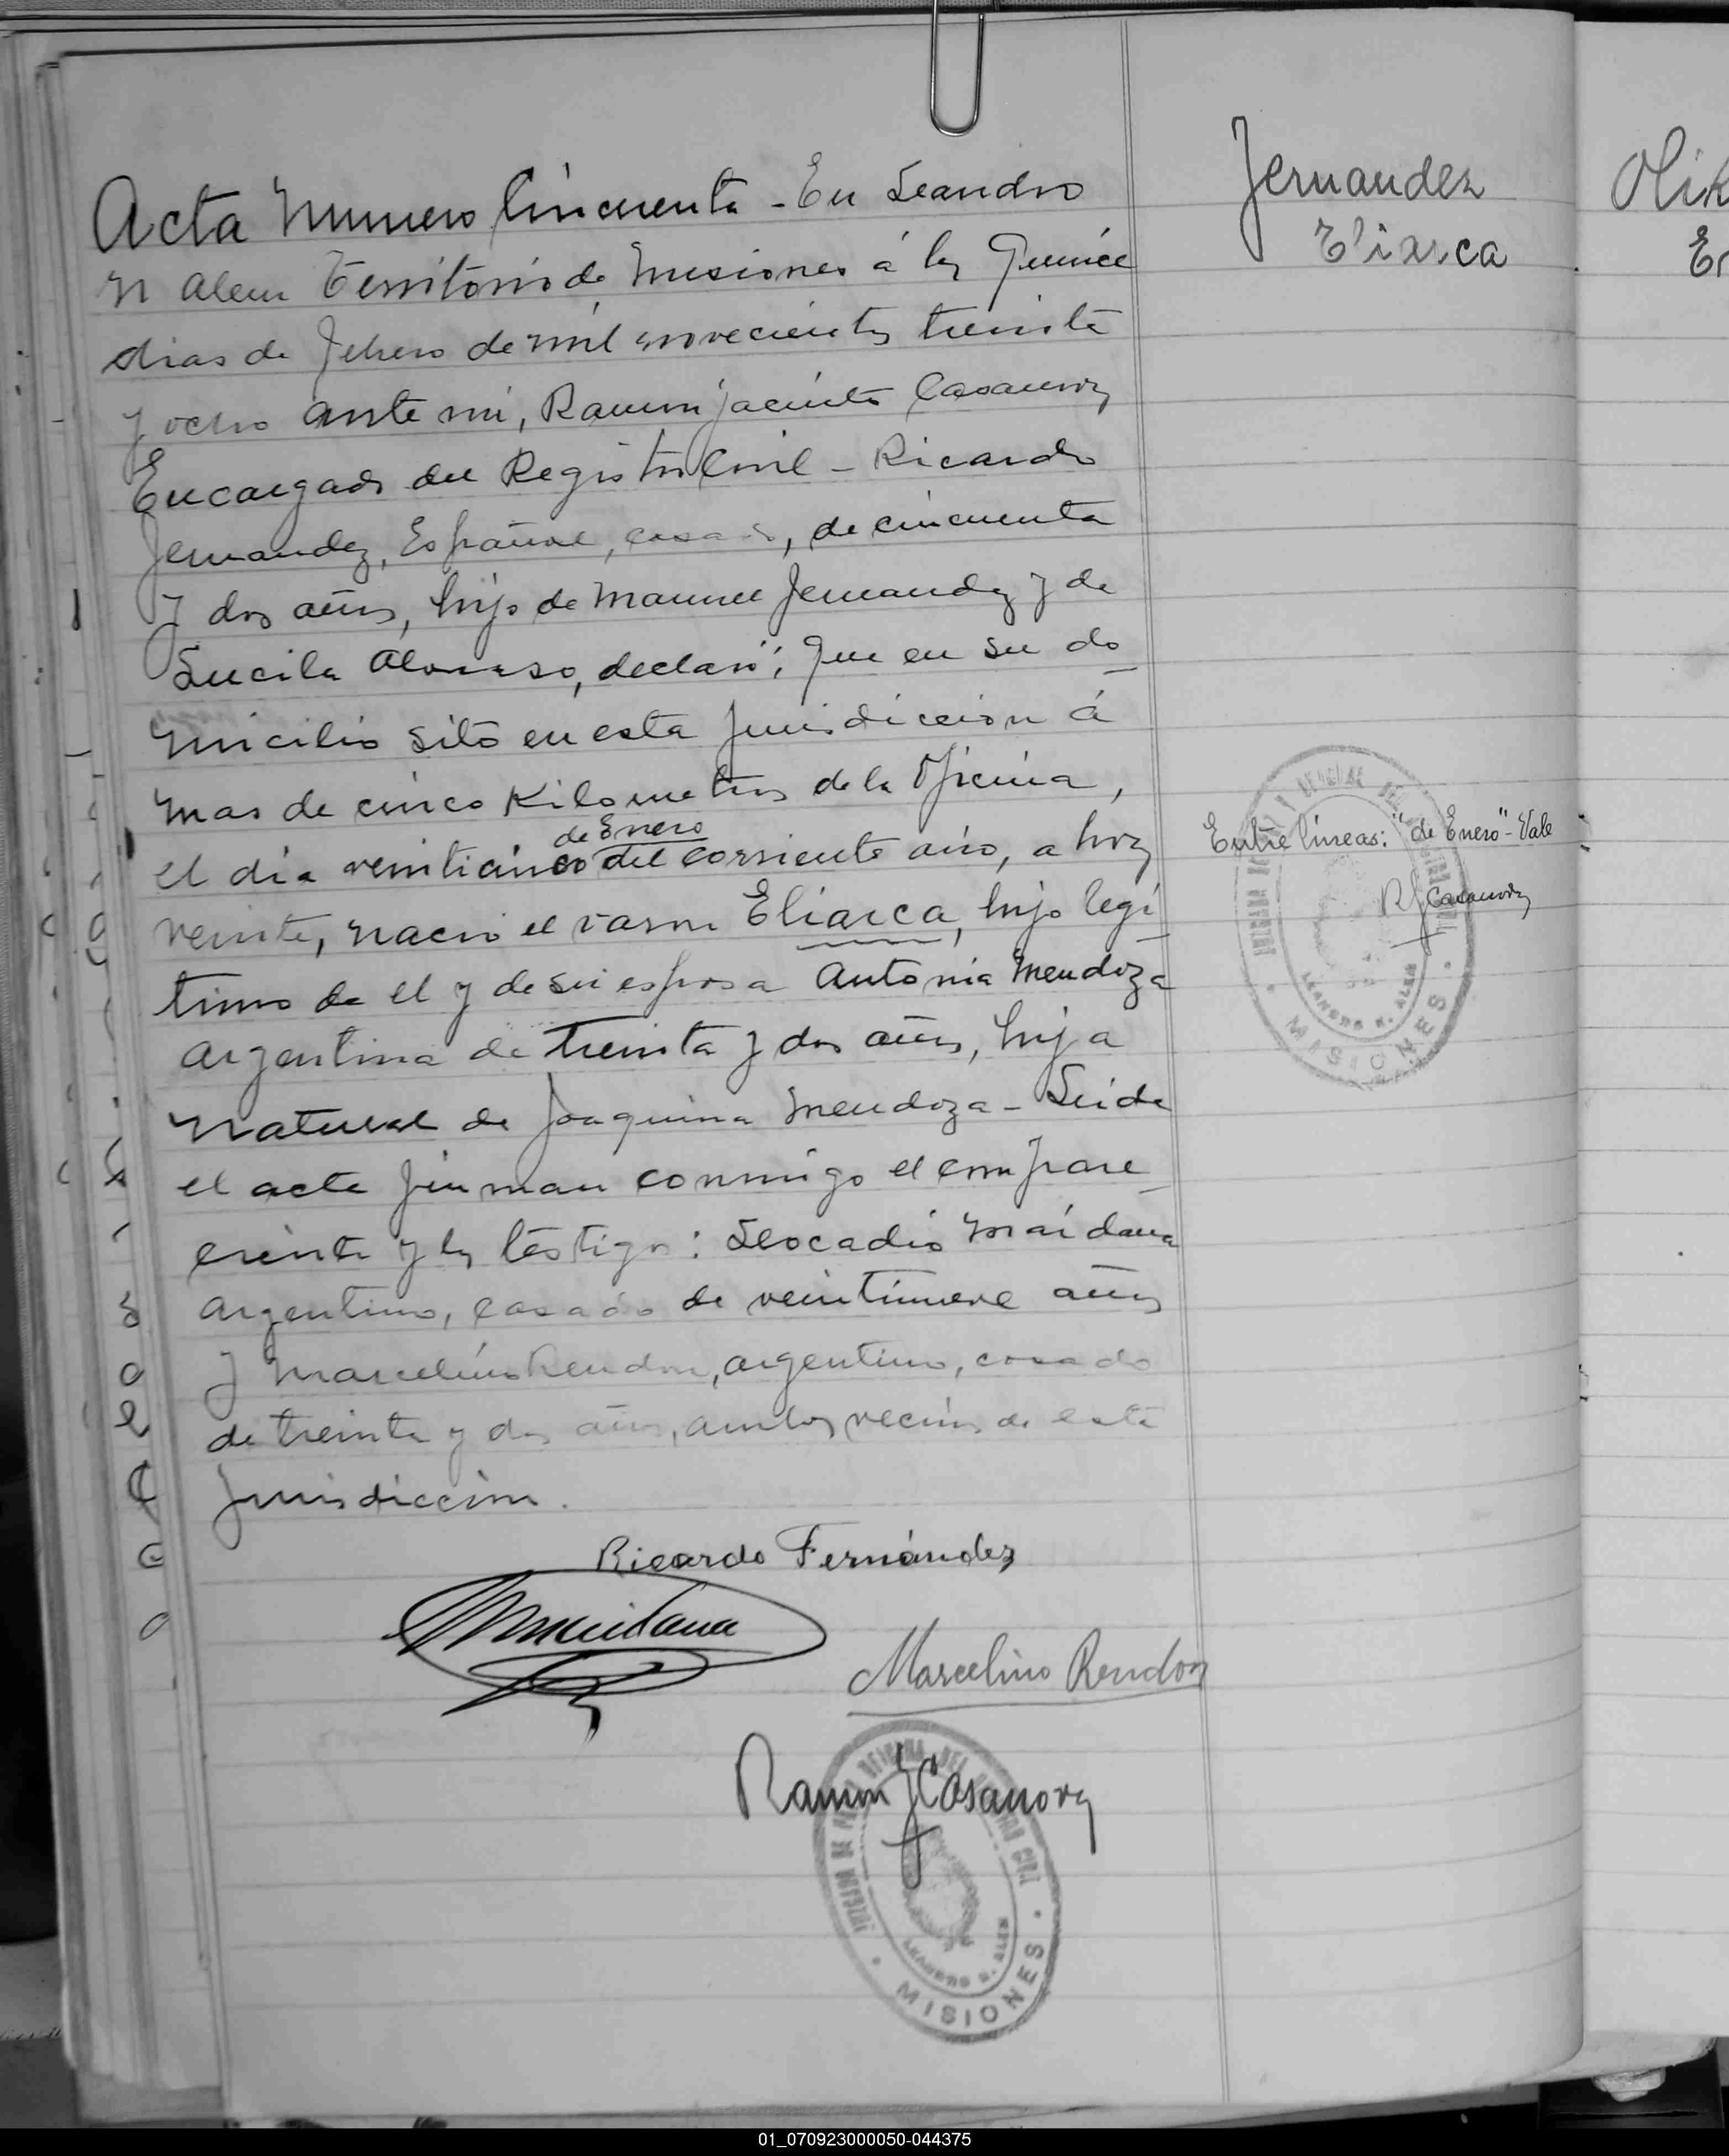 Acta Numero Cincuenta - En Leandro
N Alem Territorio de Misiones á los Quince
dias de Febrero de mil novecientos treinta
y ocho ante mi, Ramon Jacinto Casanova
Encargado del Registro Civil - Ricardo
Fernandez, Español, casado, de cincuenta
y dos años, hijo de Manuel Fernandez y de
Lucila Alonso, declaró: Que en su do
micilio sito en esta jurisdiccion á
mas de cinco Kilometros de la Oficina,
de Enero
el dia veinticinco del corriente año, a hora
veinte, nacio el varon Eliarca, hijo legi
timo de el y de su esposa Antonia Mendoza
argentina de treinta y dos años, hija
natural de Joaquina Mendoza - Leida
el acta firman conmigo el compare
ciente y los testigos: Leocadio Maidana
argentino, casado de veintinueve años
y Marcelino Rendon, argentino, casado
de treinta y dos años, ambos vecinos de esta
jurisdiccion.
Ricardo Fernández
Maidana
Marcelino Rendon
Ramon J Casanova
LEANDRO N. ALEM
MISIONES
Fernandez
Eliarca
Entre líneas: "de Enero" - Vale
R J Casanova
LEANDRO N. ALEM
MISIONES
01_070923000050-044375